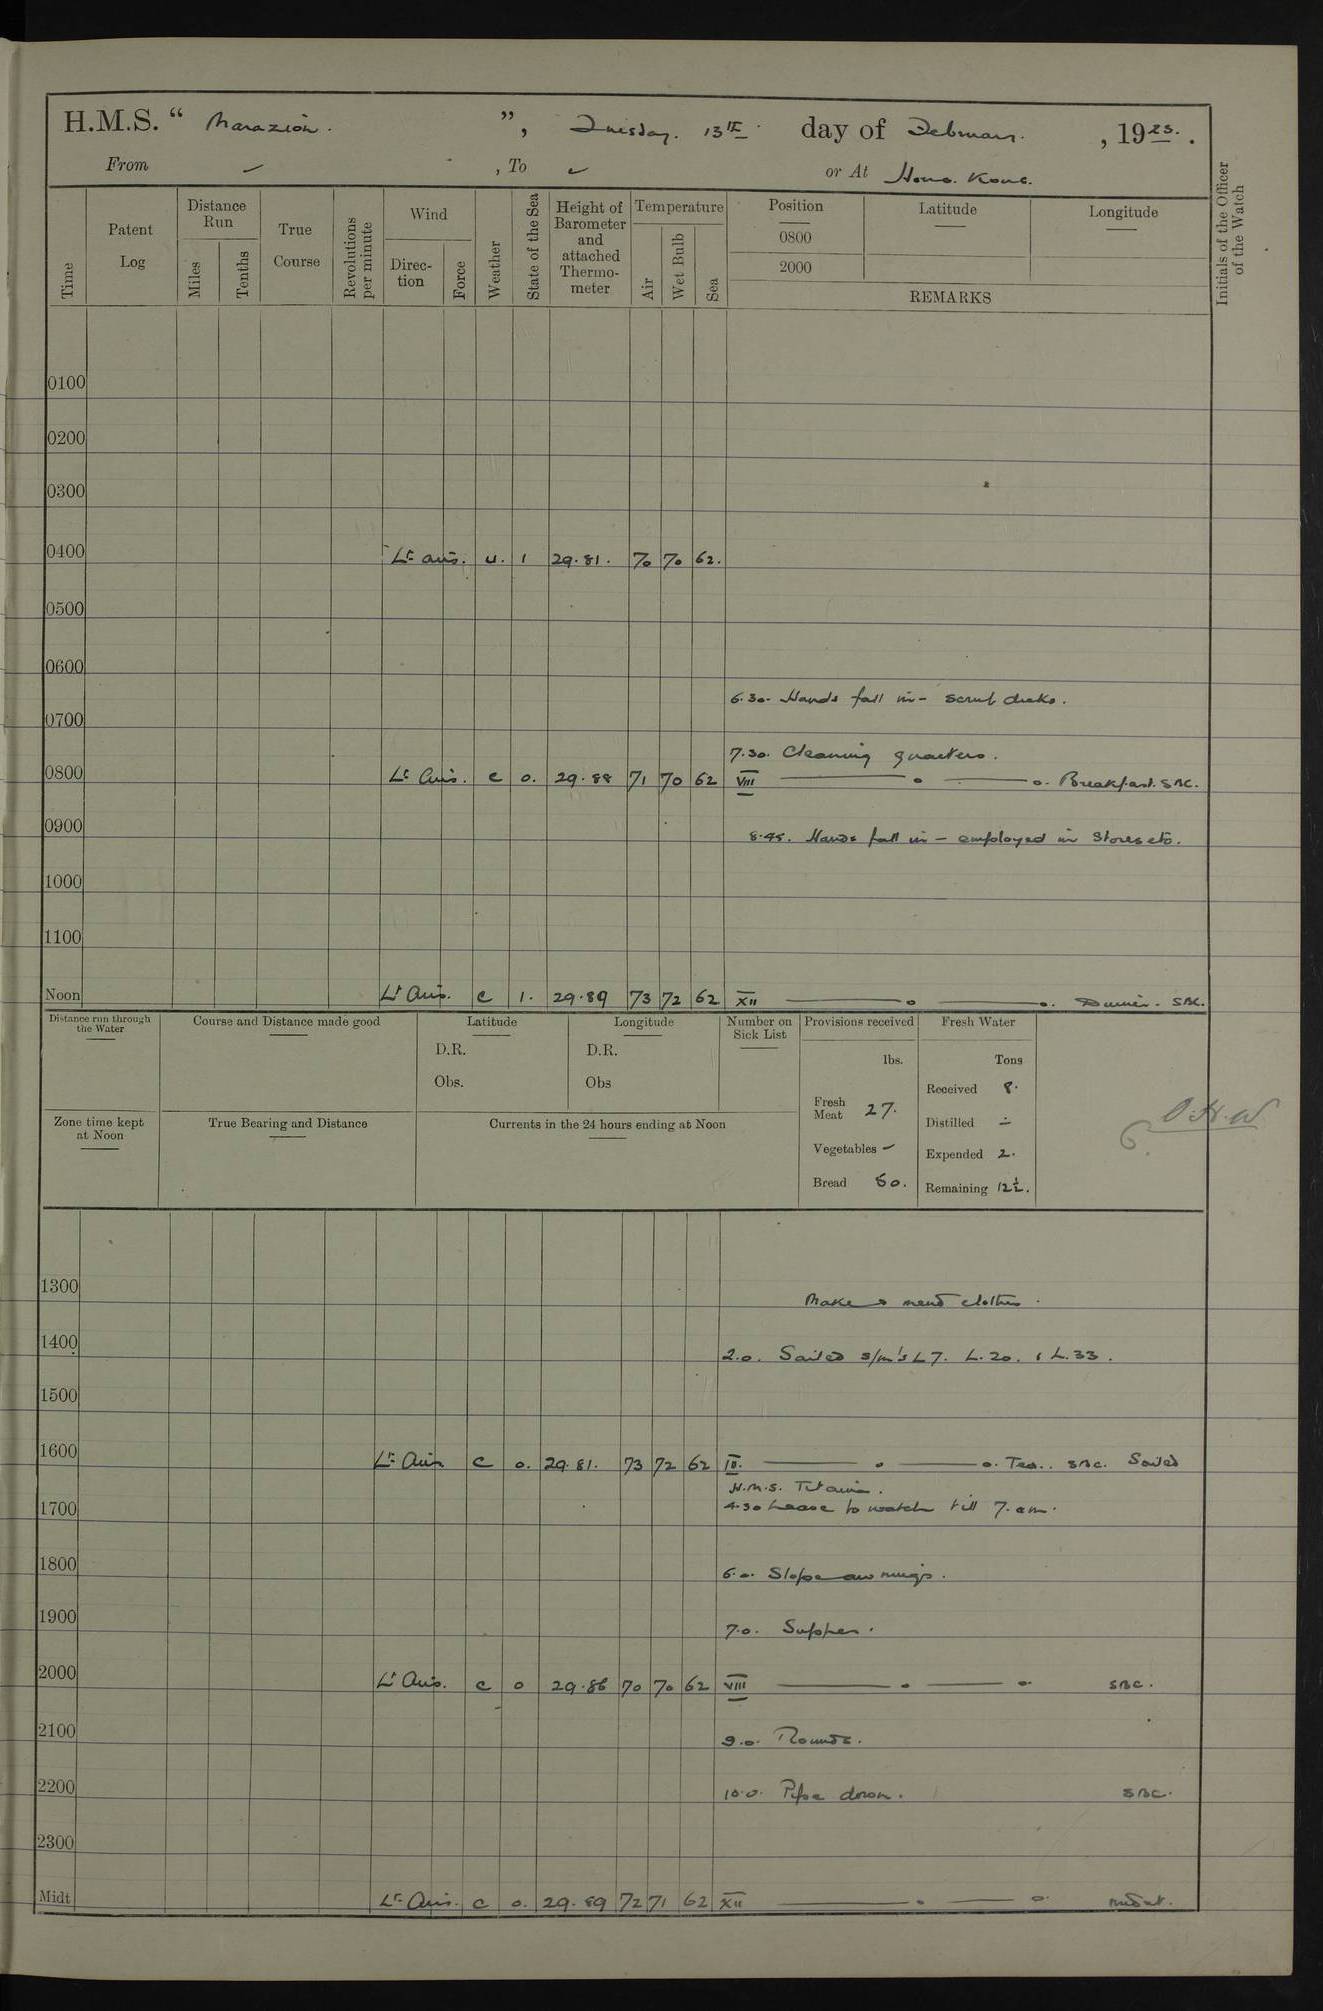 H.M.S. “ Marazion. ”, Tuesday. 13th. day of February. , 1923. .
From – , To – or At Hong Kong.
Time
Patent Log
Distance Run
Miles
Tenths
True Course
Revolutions per minute
Wind
Direction
Force
Weather
State of the Sea
Height of Barometer and attached Thermometer
Temperature
Air
Wet Bulb
Sea
Position
0800
2000
Latitude
Longitude
REMARKS
Initials of the Officer of the Watch
0100
0200
0300
0400 Lt airs. u. 1 29.81. 70 70 62.
0500
0600
6.30. Hands fall in – scrub decks.
0700
7.30. Cleaning quarters.
0800 Lt Airs. c 0. 29.88 71 70 62 VIII ——— o ——— o. Breakfast. SBC.
0900 8.45. Hands fall in – employed in stores etc.
1000
1100
Noon Lt Airs. c 1. 29.89 73 72 62 XII ——— o ——— o. Dinner. SBC.
Distance run through the Water
Course and Distance made good
Latitude
D.R.
Obs.
Longitude
D.R.
Obs
Number on Sick List
Provisions received
lbs.
Fresh Meat 27.
Vegetables –
Bread 50.
Fresh Water
Tons
Received 8.
Distilled –
Expended 2.
Remaining 12½.
Zone time kept at Noon
True Bearing and Distance
Currents in the 24 hours ending at Noon
1300 Make & mend clothes.
1400 2.0. Sailed s/m's L7. L.20. & L.33.
1500
1600 Lt Airs c 0. 29.81. 73 72 62 IV. ——— o ——— o. Tea.. SBC. Sailed
H.M.S. Titania.
1700 4.30 Leave to watch till 7. am.
1800 6.0. Slope awnings.
1900 7.0. Supper.
2000 Lt Airs. c 0 29.86 70 70 62 VIII ——— o ——— o SBC.
2100 9.0. Rounds.
2200 10.0. Pipe down. SBC.
2300
Midt Lt Airs. c 0. 29.89 72 71 62 XII ——— o ——— o.